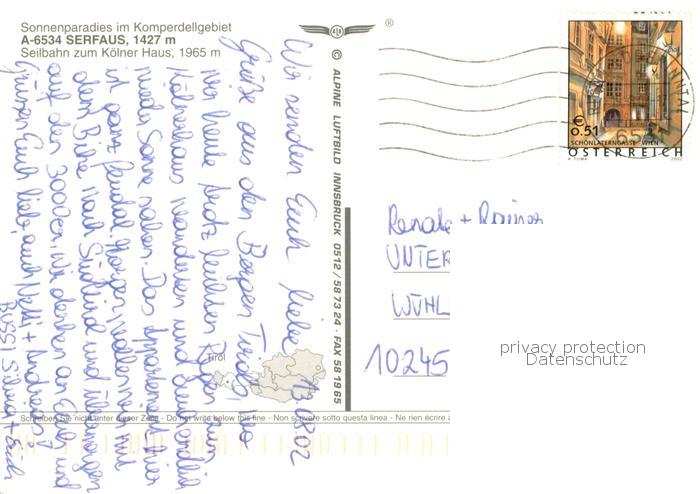 Sonnenparadies im Komperdellgebiet
A-6534 SERFAUS, 1427 m
Seilbahn zum Kölner Haus, 1965 m
®
© ALPINE LUFTBILD INNSBRUCK 0512/58 73 24 · FAX 58 19 65
13.08.02
Wir senden Euch liebe
Grüße aus den Bergen Tirols, wo
wir heute trotz leichten zum
wandern und
wieder Sonne haben. Das Appartement hier
ist ganz Morgen wollen wir mit
dem Bike nach Südtirol und übermorgen
auf den 3000er. Wir denken an Euch und
grüßen Euch lieb, auch Nelli + Andreas
BUSSI
Tirol
Schreiben Sie nicht unter dieser Zeile - Do not write below this line - Non scrivere sotto questa linea - Ne rien écrire a
€ 0.51
SCHÖNLATERNGASSE, WIEN
ÖSTERREICH
A. TUMA 2002
653
Renate +
UNTER
WÜHL
10245
privacy protection
Datenschutz